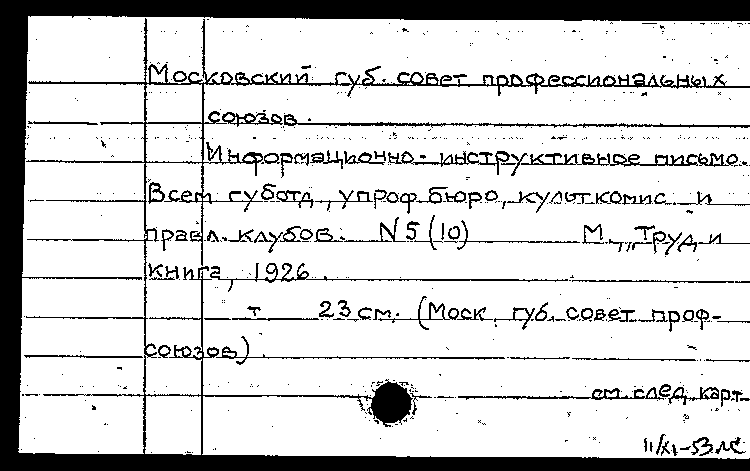 Московский губ. совет профессиональных
союзов.
Информационно-инструктивное письмо.
Всем губотд., упроф.бюро, культкомис. и
правл. клубов. N 5 (10) М., „Труд и
книга, 1926.
т 23 см. (Моск. губ. совет проф-
союзов).
см. след. карт.
11/XI-53